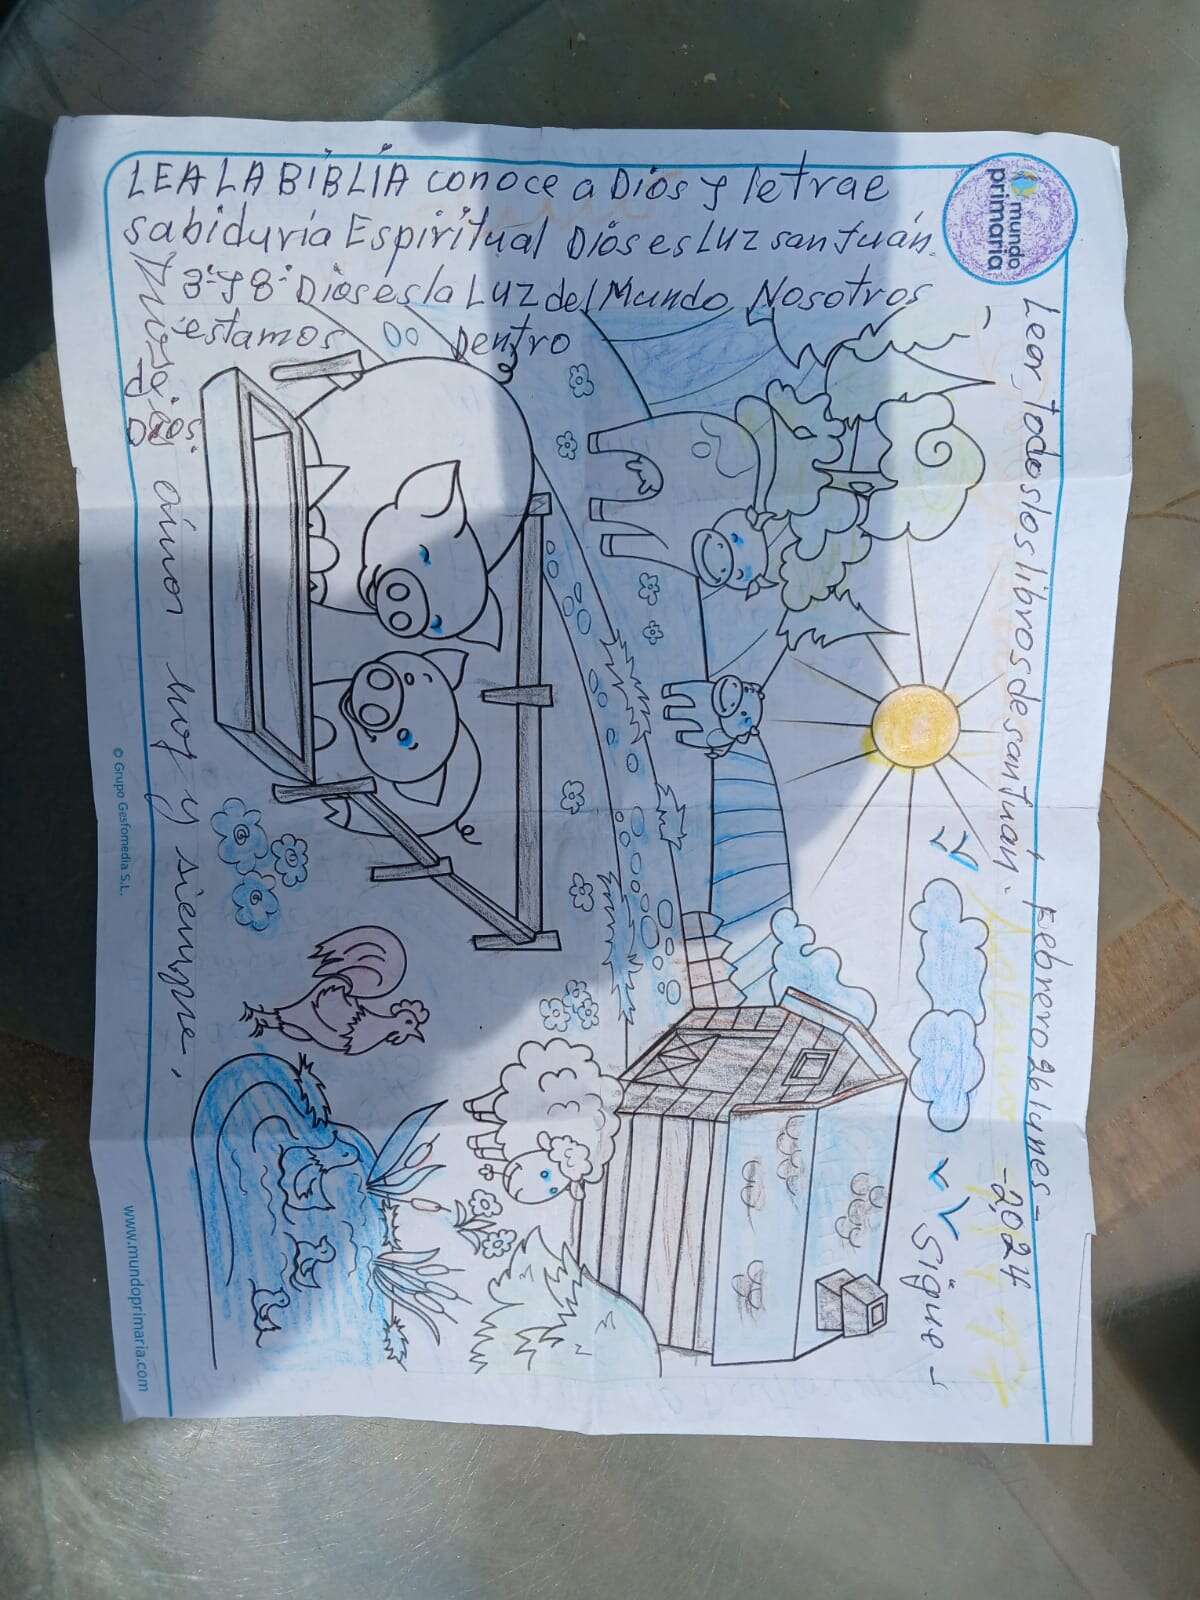 LEA LA BIBLIA conoce a Dios y letrae
sabiduría Espiritual Dios es Luz san Juán.
3. y 8. Dios es la Luz del Mundo Nosotros
estamos Dentro
de
Dios.
mundo
primaria
Leer, todos los libros de san Juán. Febrero 26 lunes -
-2,024
Sigue -
amor hoy y siempre.
© Grupo Gesfomedia S.L.
www.mundoprimaria.com